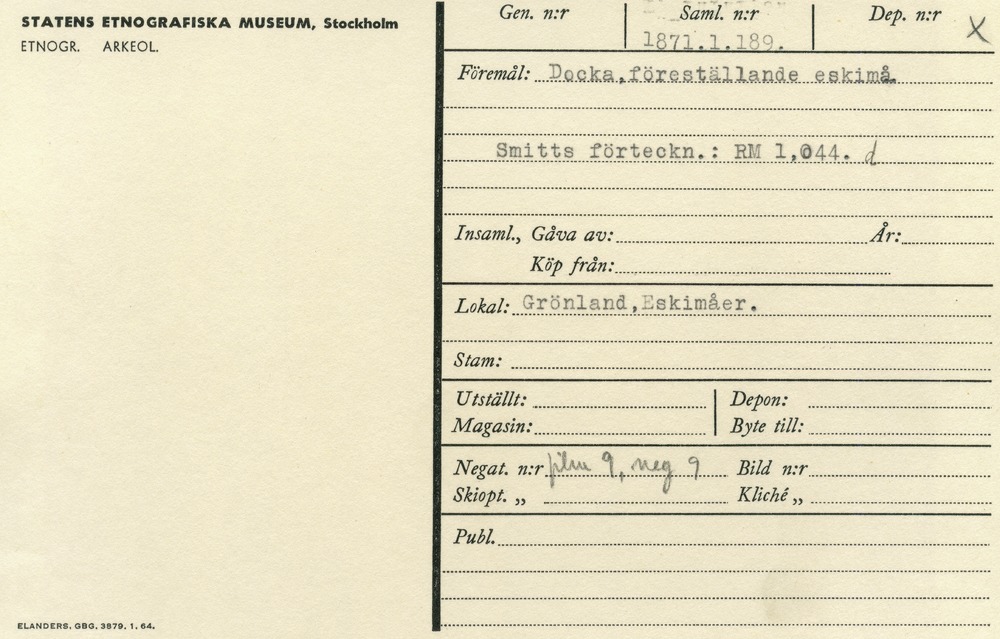 STATENS ETNOGRAFISKA MUSEUM, Stockholm
ETNOGR. ARKEOL.
Gen. n:r Saml. n:r Dep. n:r X
1871.1.189.
Föremål: Docka, föreställande eskimå.
Smitts förteckn.: RM 1,044. d
Insaml., Gåva av: År:
Köp från:
Lokal: Grönland, Eskimåer.
Stam:
Utställt: Depon:
Magasin: Byte till:
Negat. n:r film 9, neg 9 Bild n:r
Skiopt. „ Kliché „
Publ.
ELANDERS. GBG. 3879. 1. 64.